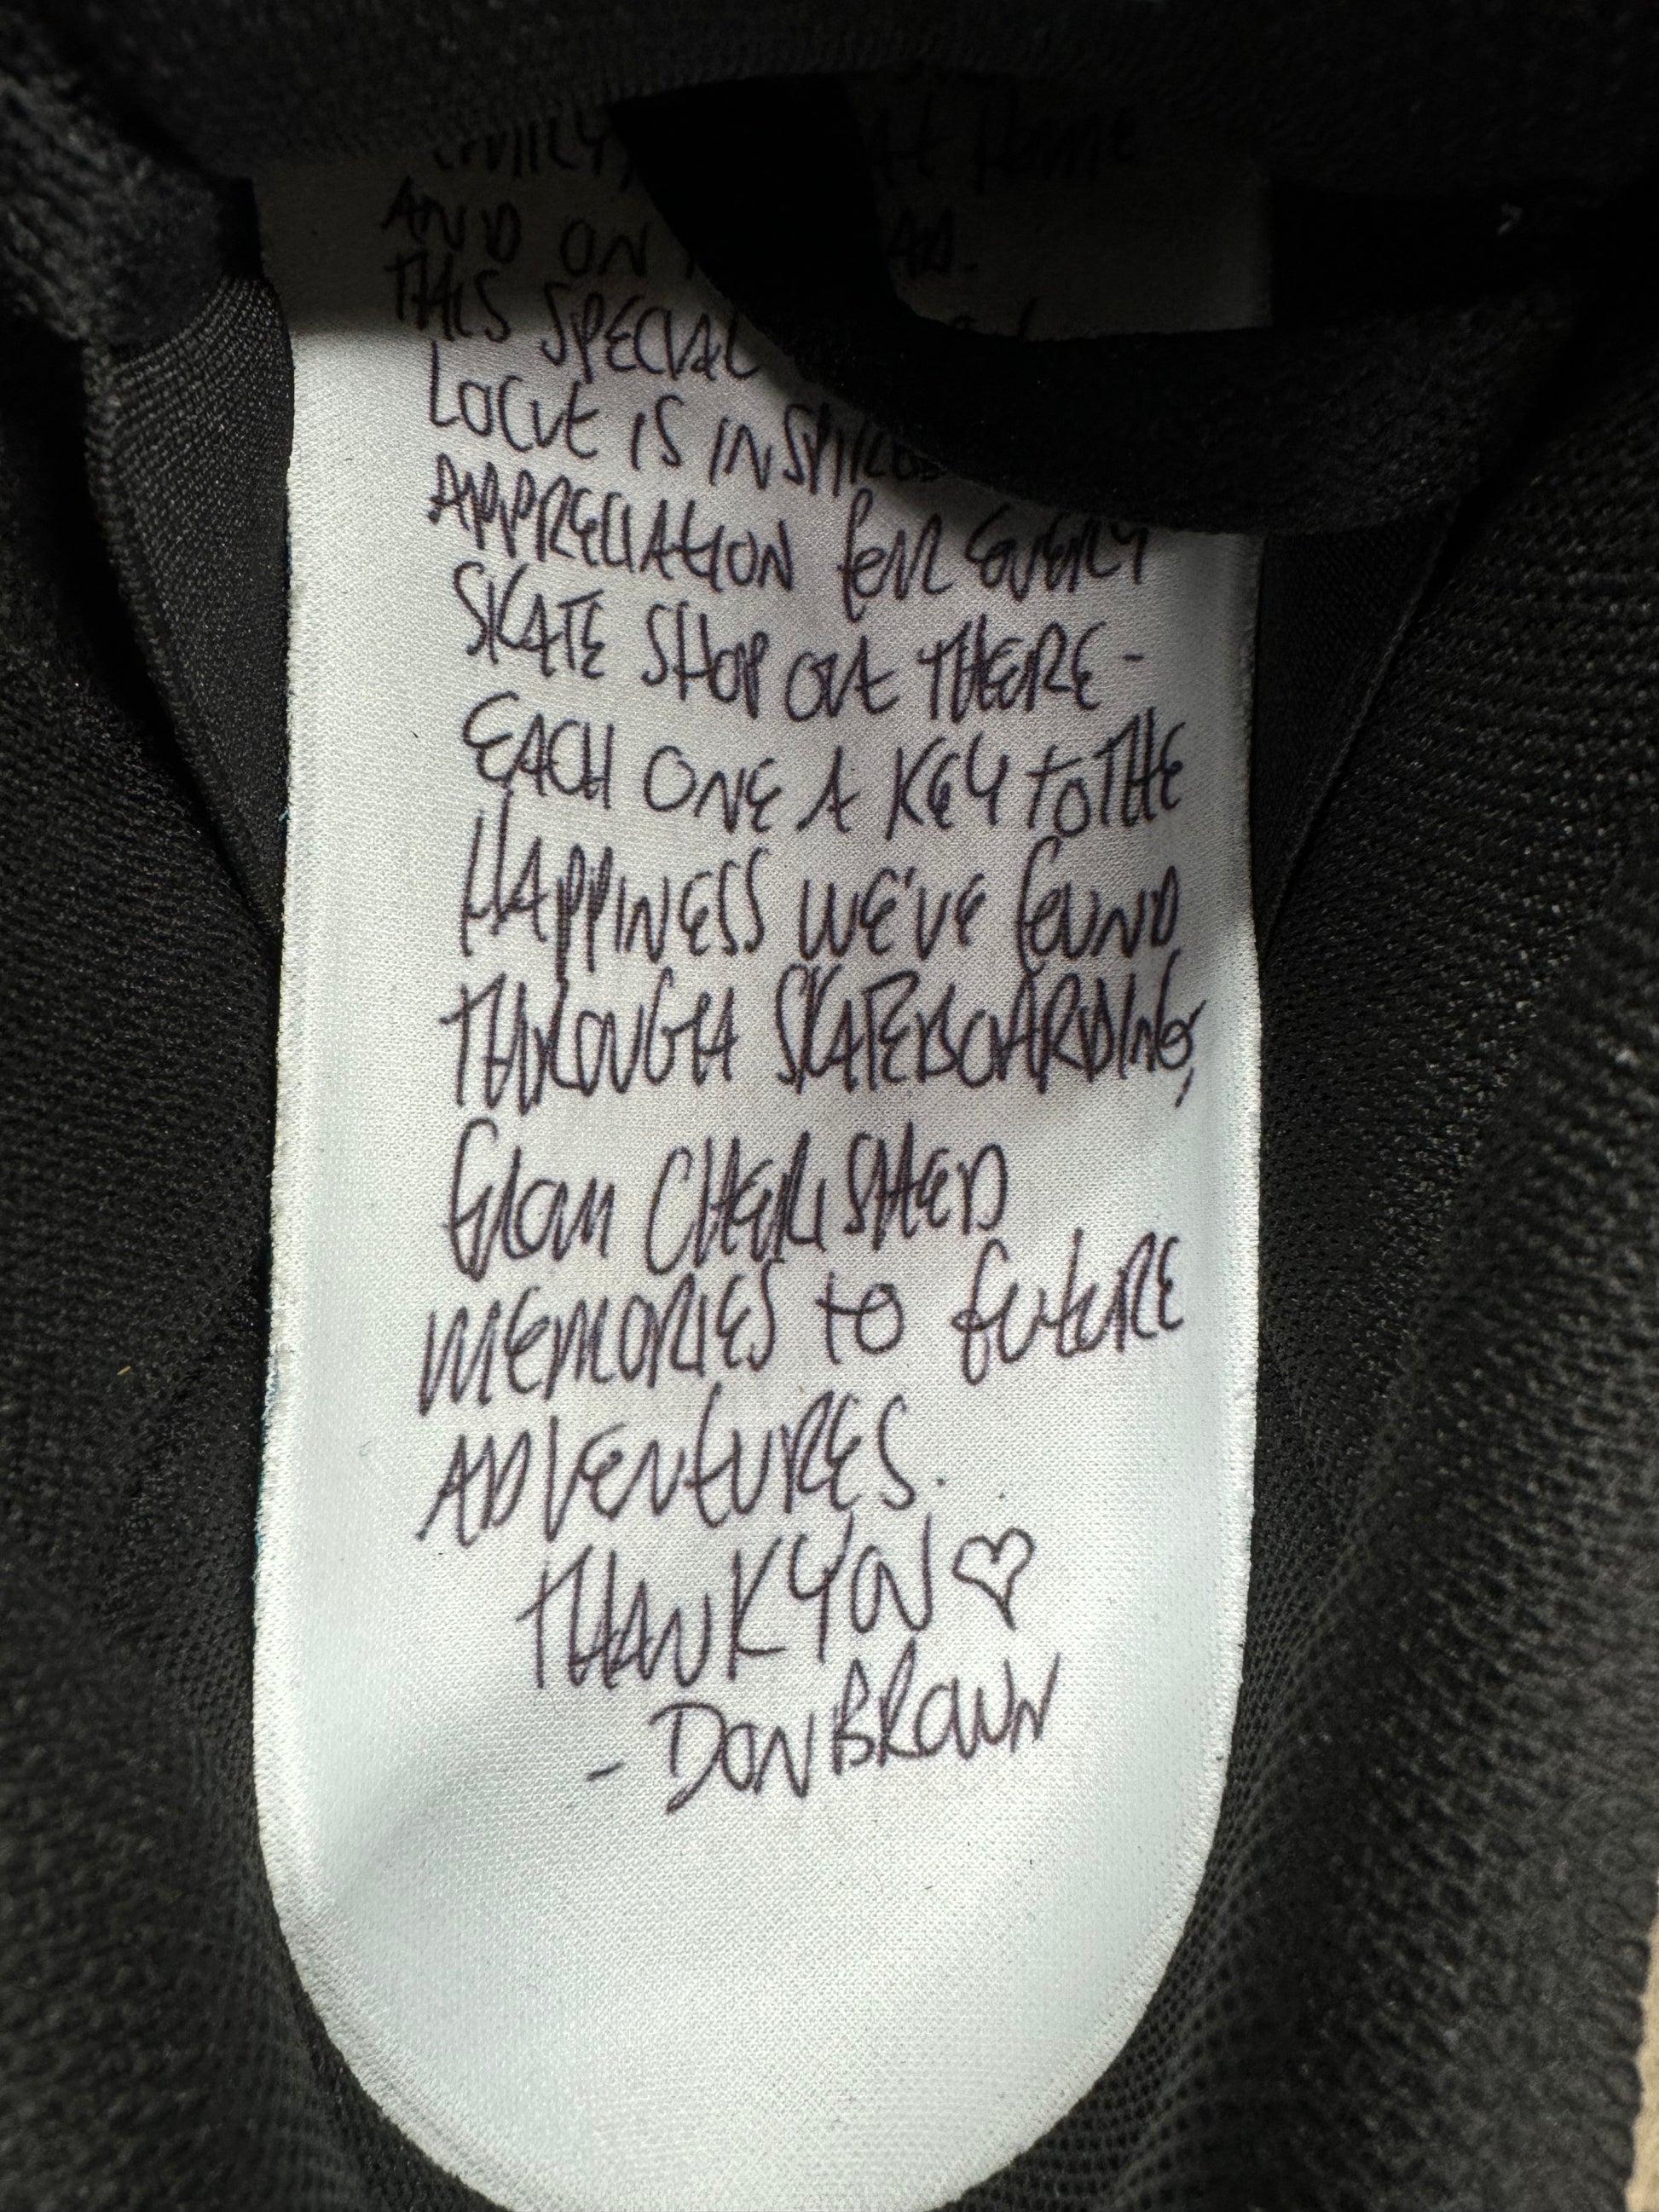 AND ON
THIS SPECIAL
LOCUt IS INSPIRED
APPRECIATION FOR EVERY
SKATE SHOP OUT THERE -
EACH ONE A KEY TO THE
HAPPINESS WE'VE FOUND
THROUGH SKATEBOARDING,
FROM CHERISHED
MEMORIES TO FUTURE
ADVENTURES.
THANK YOU ♡
- DON BROWN